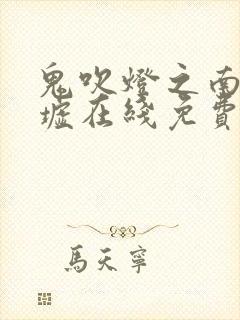 鬼吹燈之南
墟在綫免費
馬天寧